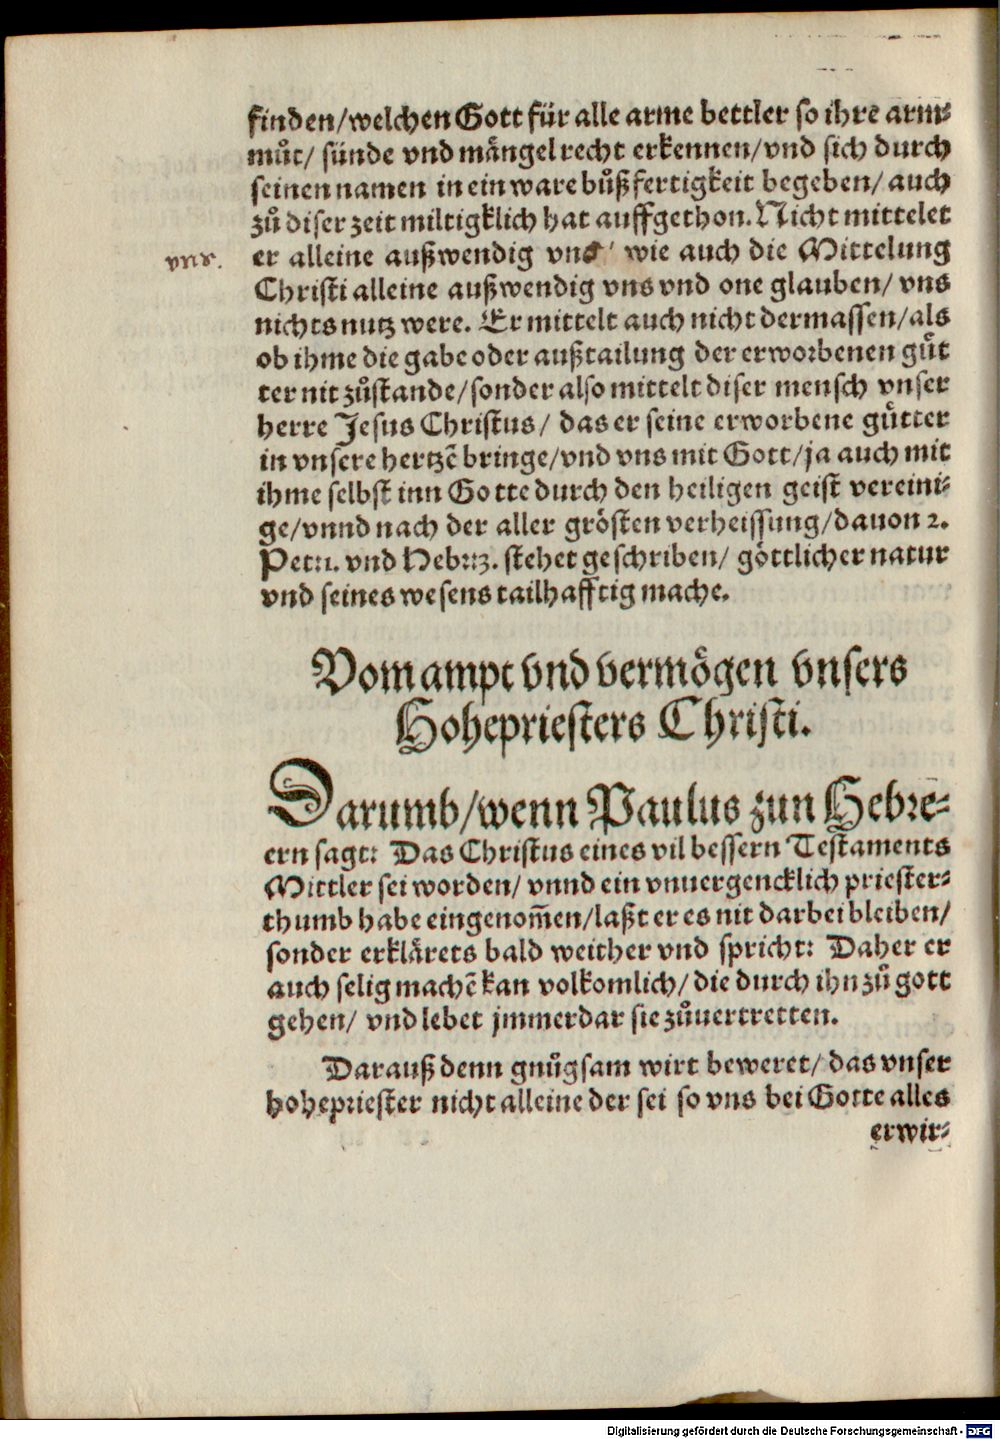 finden/welchen Gott für alle arme bettler so ihre arm⸗
můt/ sünde vnd mängel recht erkennen/vnd sich durch
seinen namen in ein ware bůßfertigkeit begeben/ auch
zů diser zeit miltigklich hat auffgethon. Nicht mittelet
vnr.
er alleine außwendig vns/ wie auch die Mittelung
Christi alleine außwendig vns vnd one glauben/ vns
nichts nutz were. Er mittelt auch nicht dermassen/als
ob ihme die gabe oder außtailung der erworbenen gůt
ter nit zůstande/sonder also mittelt diser mensch vnser
herre Jesus Christus/ das er seine erworbene gůtter
in vnsere hertzē bringe/vnd vns mit Gott/ja auch mit
ihme selbst inn Gotte durch den heiligen geist vereini⸗
ge/vnnd nach der aller grösten verheissung/dauon 2.
Petri. vnd Hebr:3. stehet geschriben/ göttlicher natur
vnd seines wesens tailhafftig mache.
Vom ampt vnd vermögen vnsers
Hohepriesters Christi.
Darumb/wenn Paulus zun Hebre⸗
ern sagt: Das Christus eines vil bessern Testaments
Mittler sei worden/ vnnd ein vnuergencklich priester⸗
thumb habe eingenom̄en/laßt er es nit darbei bleiben/
sonder erklärets bald weither vnd spricht: Daher er
auch selig machē kan volkomlich/ die durch ihn zů gott
gehen/ vnd lebet jmmerdar sie zůuertretten.
Darauß denn gnůgsam wirt beweret/ das vnser
hohepriester nicht alleine der sei so vns bei Gotte alles
erwir⸗
Digitalisierung gefördert durch die Deutsche Forschungsgemeinschaft - DFG